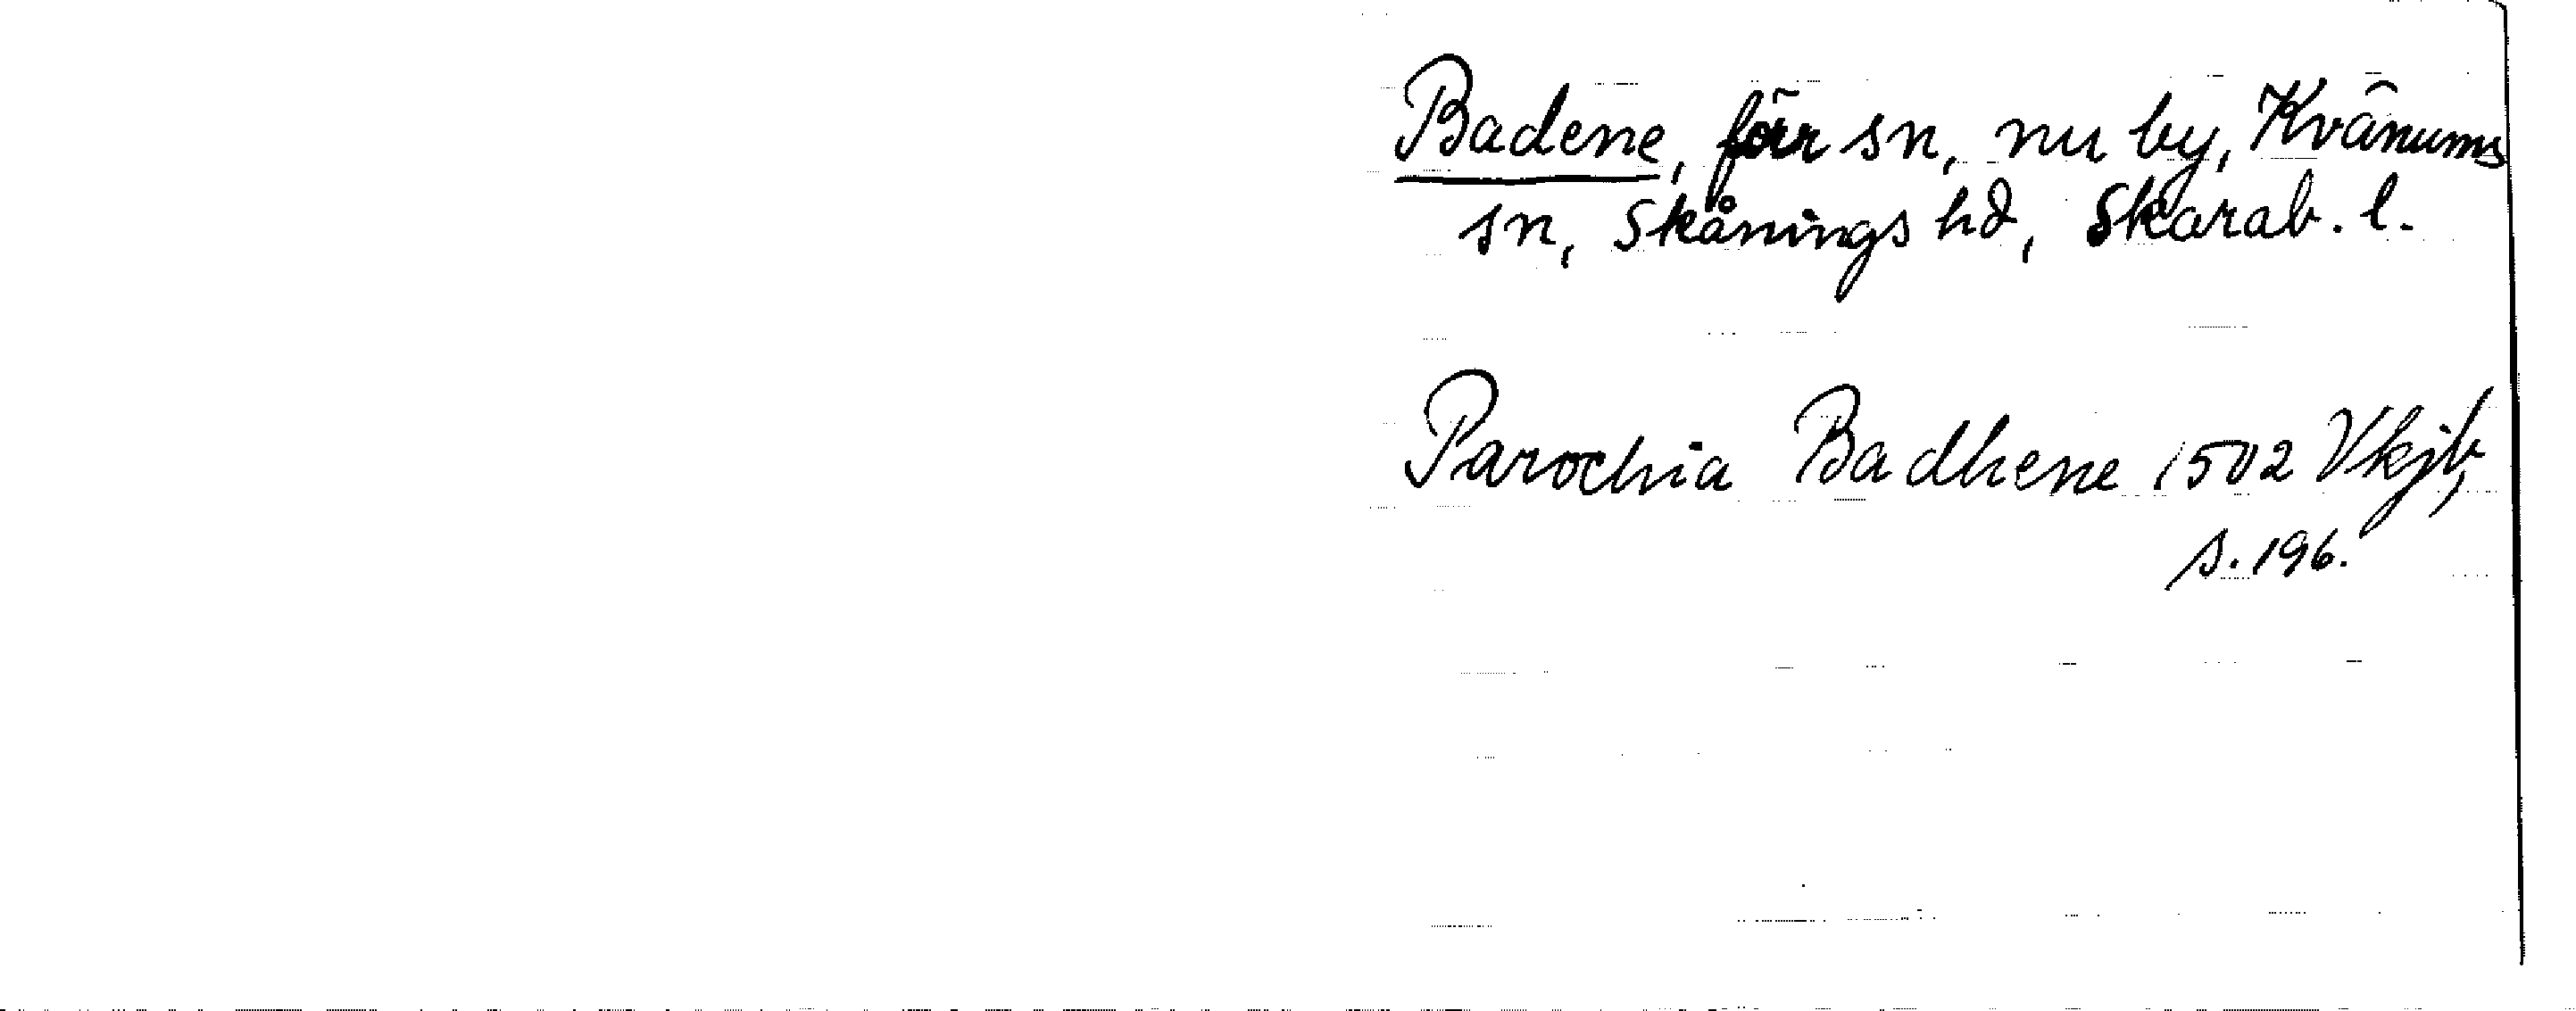 Badene, förr sn, nu by, Kvänums
sn, Skånings hd, Skarab. l.
Parochia Badhene 1502 Vkjb,
s. 196.